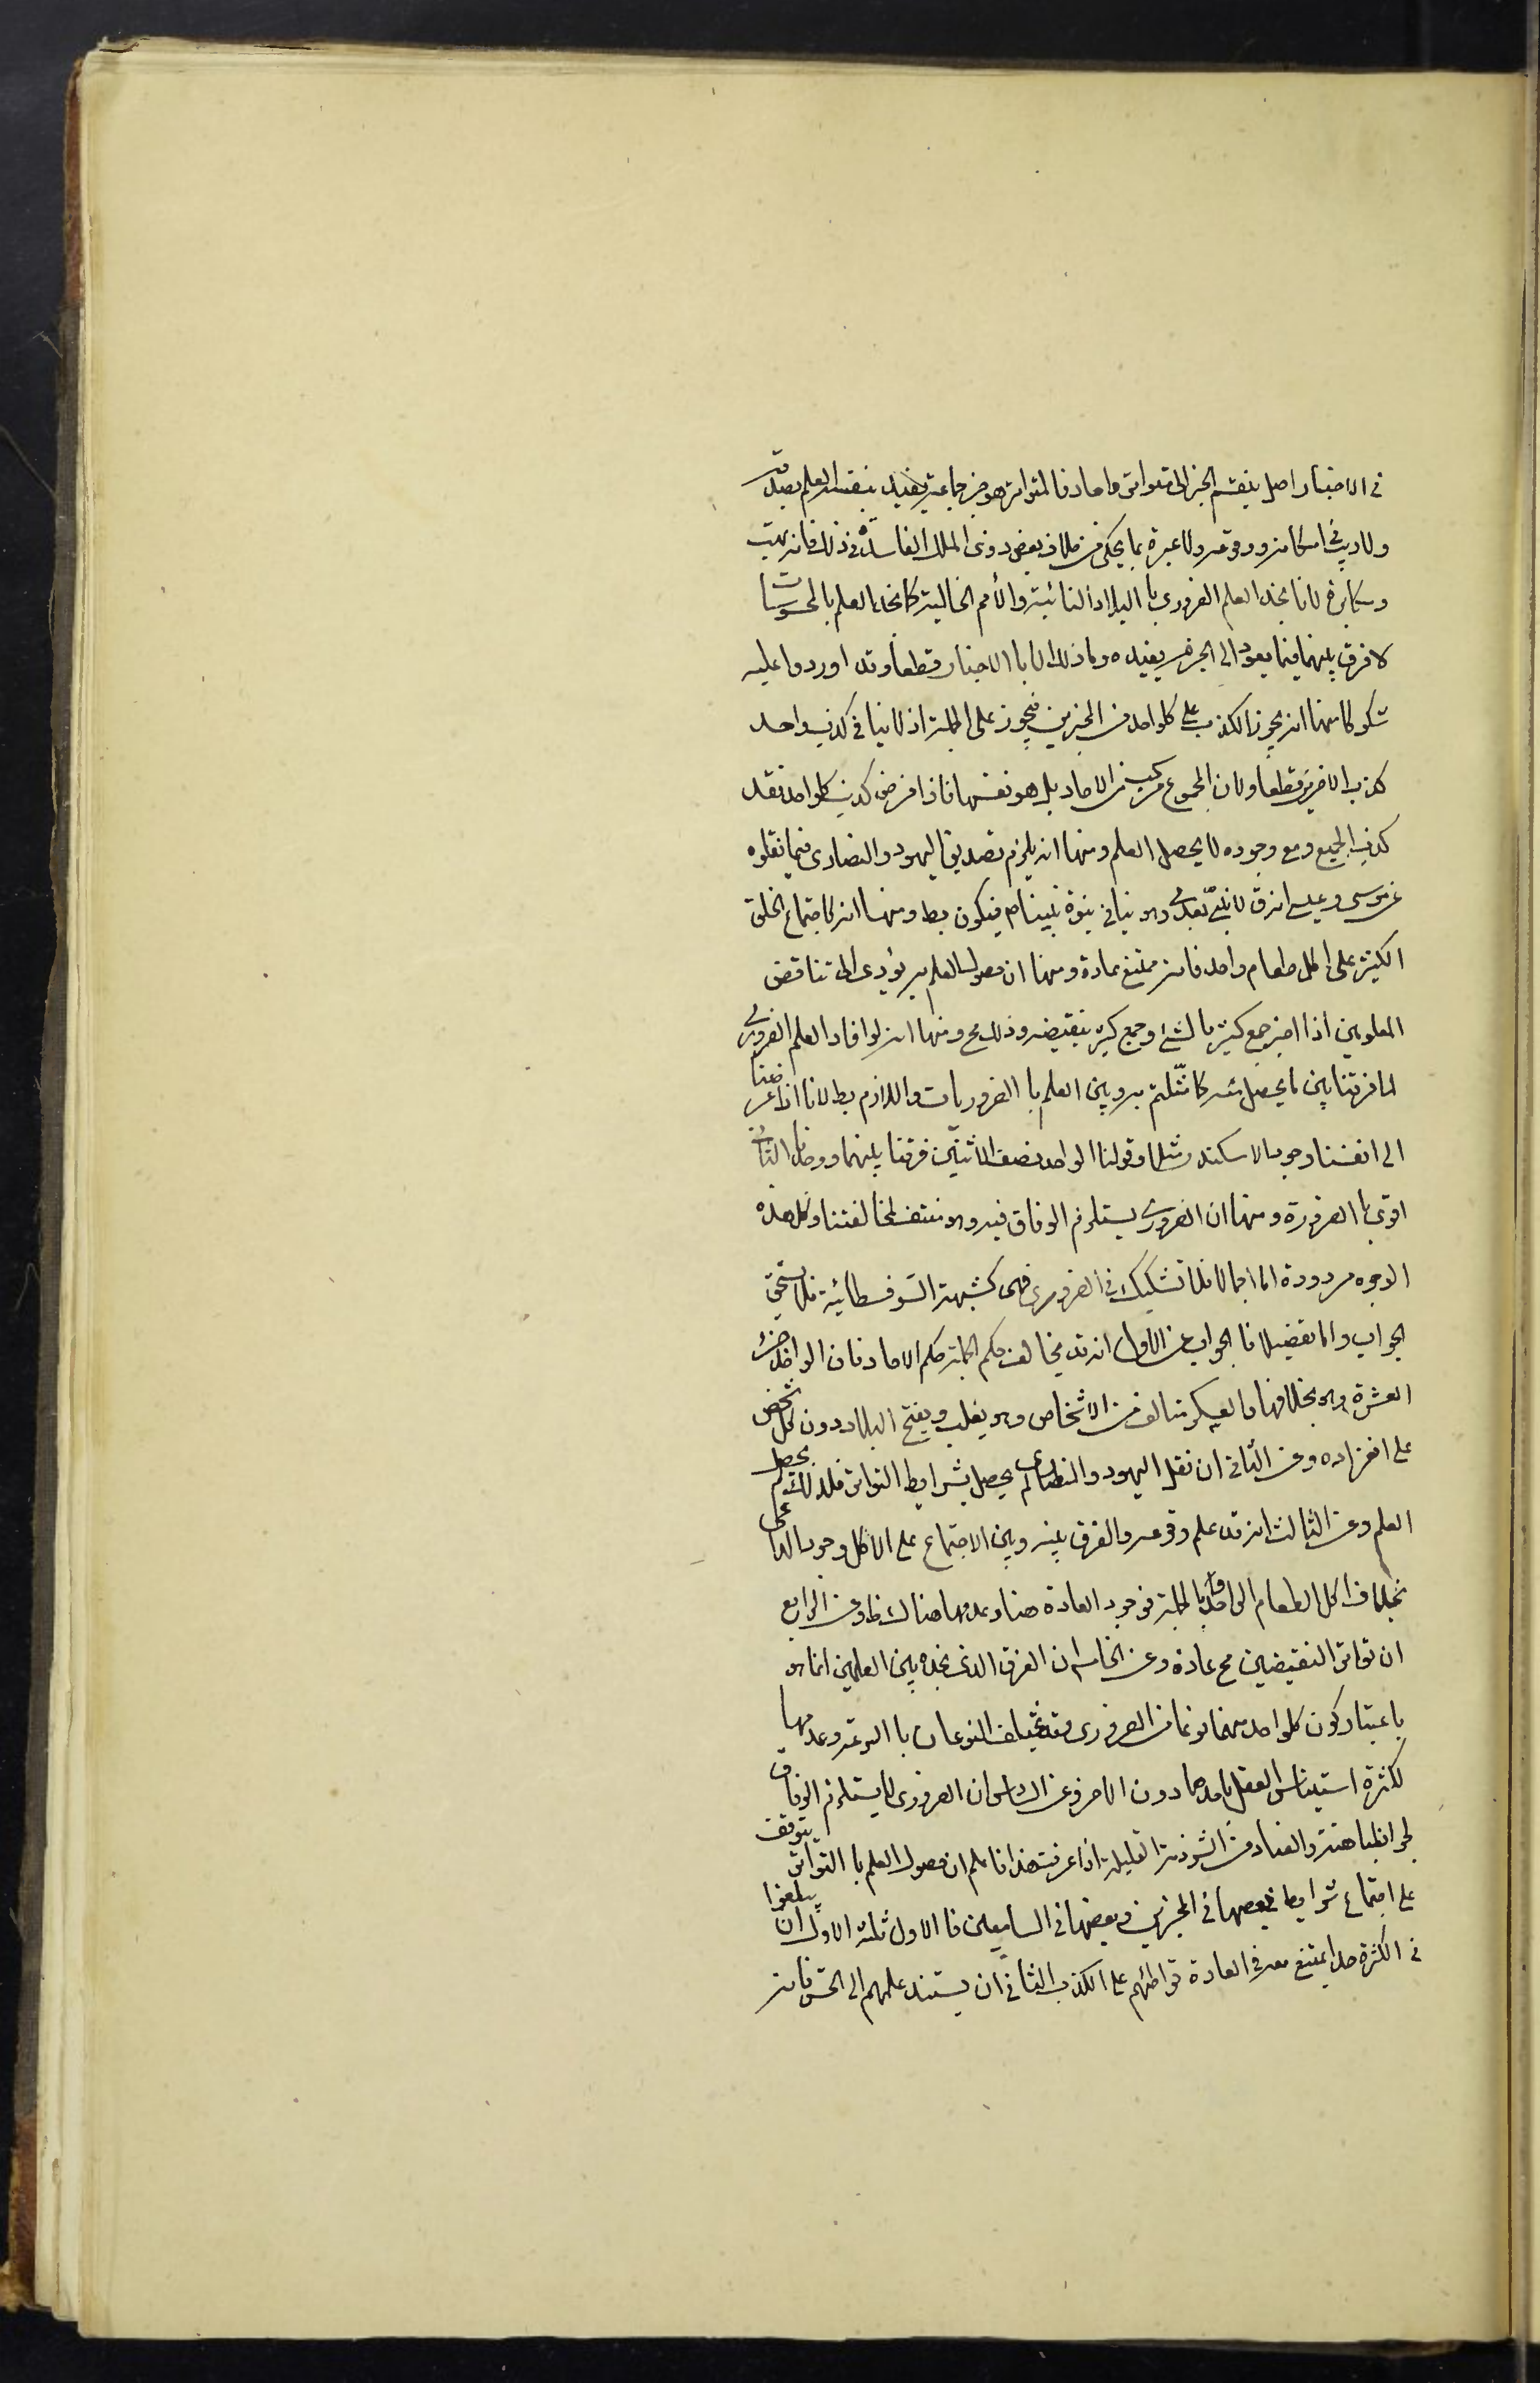 في الاخبار اصل ينقسم الخبر الى متواتر واحاد فالمتواتر هو خبر جماعة يفيد بنفسه العلم بصدقه
ولا ريب في امكانه ووقوعه ولا عبرة بما يحكى من خلاف بعض ذوى الملل الفاسدة في ذلك فانه بهت
ومكابرة لانا نجد العلم الضروري با البلاد النائية والأمم الخالية كما نجد العلم بالمحسوسات
لا فرق بينهما فيما يعود الى الجزم يفيده وما ذلك الا با الاخبار قطعا وقد اوردوا عليه
شكوكا منها انه يجوز الكذب على كلواحد من المخبرين فيجوز على الجملة اذ لا ينافي كذب واحد
كذب الاخرين قطعا ولان المجموع مركب من الاحاد بل هو نفسها فاذا فرض كذب كلواحد فقد
كذب الجميع ومع وجوده لا يحصل العلم ومنها انه يلزم تصديق اليهود والنصارى فيما نقلوه
عن موسى وعيسى انه ق لا نبيّ بعدى وهو ينافى نبوة نبينا ص فيكون بط ومنها انه كاجتماع الخلق
الكثير على اكل طعام واحد فانه ممتنع عادة ومنها ان حصول العلم به يؤدى الى تناقض
المعلومين اذا اخبر جمع كثير بالشئ وجمع كثير بنقيضه وذلك مح ومنها انه لو افاد العلم الضرورى
لما فرقنا بين ما يحصل منه كما مثّلتم به وبين العلم با الضروريات واللازم بط لانا اذا عرضنا
الى انفسنا وجود الاسكندر مثلا وقولنا الواحد نصف الاثنين فرقنا بينهما ووجدنا الثانى
اقوى با الضرورة ومنها ان الضرورى يستلزم الوفاق فيه وهو منتف لمخالفتنا وكل هذه
الوجوه مردودة اما اجمالا فلانه تشكيك في الضرورى فهى كشبهة السوفسطائية فلا تستحق
الجواب واما تفصيلا فا الجواب عن الاول انه قد يخالف حكم الجملة حكم الاحاد فان الواحد جزء
العشرة وهو بخلافها والعسكر متالف من الاشخاص وهو يغلب ويفتح البلاد دون كل شخص
على انفراده وعن الثانى ان نقل اليهود والنصارى لم يحصل بشرايط التواتر فلذلك لم يحصل
العلم وعن الثالث انه قد علم وقوعه والفرق بينه وبين الاجتماع على الاكل وجود الداعى
بخلاف اكل الطعام الواحد وبا لجملة فوجود العادة هنا وعدمها هناك ظ وعن الرابع
ان تواتر النقيضين مح عادة وعن الخامس ان الفرق الذى نجده بين العلمين انما هو
باعتبار كون كلواحد منهما نوعا من الضرورى وقد يختلف النوعان با السرعة وعدمها
لكثرة استيناس العقل باحدهما دون الاخر وعن السادس ان الضرورى لا يستلزم الوفاق
لجواز المباهتة والعناد من الشرذمة القليلة اذا عرفت هذا فاعلم ان حصول العلم با التواتر يتوقف
على اجتماع شرايط بعضها في المخبرين وبعضها في السامعين فا الاول ثلثة الاول ان يبلغوا
في الكثرة حدا يمتنع معه في العادة تواطئهم على الكذب الثانى ان يستند علمهم الى الحسّ فانه